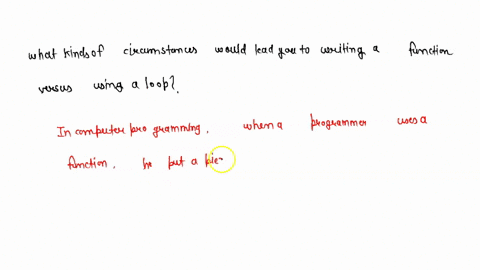 what kinds of circumstances would lead you to writing a function
versus using a loop?.
In computer programming, when a programmer uses a
function, he put a pie